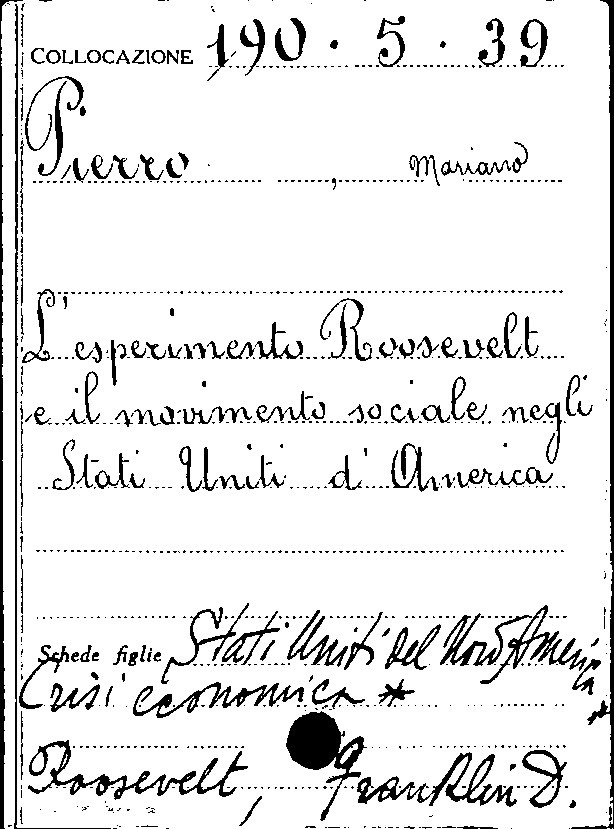 COLLOCAZIONE 190 . 5 . 39
Pierro , Mariano
L'esperimento Roosevelt
e il movimento sociale negli
Stati Uniti d'America
Schede figlie Stati Uniti del Nord America *
Crisi economica *
Roosevelt, Franklin D.